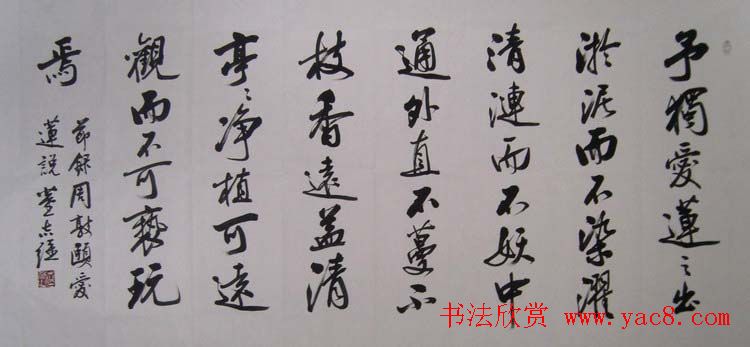 予獨愛蓮之出
淤泥而不染濯
清漣而不妖中
通外直不蔓不
枝香遠益清
亭〻净植可遠
觀而不可褻玩
焉
節録周敦頤愛
蓮説
书法欣赏 www.yac8.com